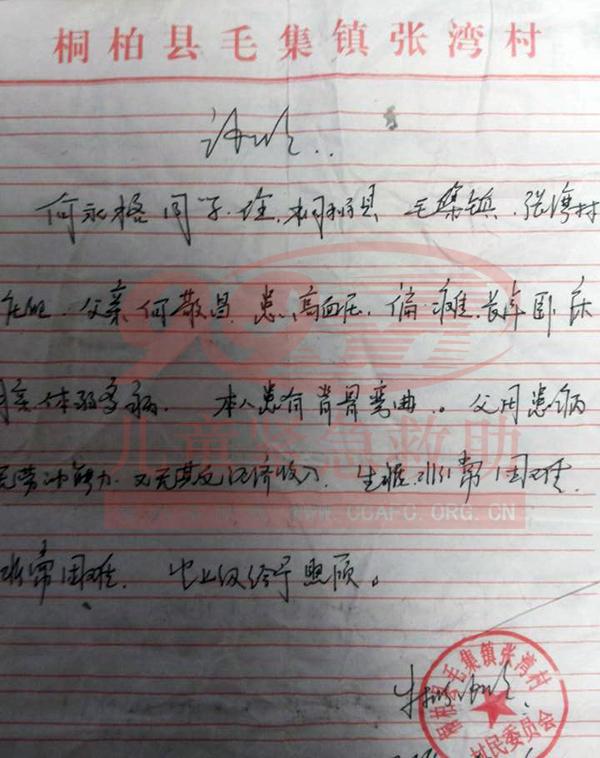 桐柏县毛集镇张湾村
证明
何永格同学.住.桐柏县 毛集镇.张湾村
父亲何敬昌.患高血压.偏瘫.长年卧床
体弱多病. 本人患有脊骨弯曲。父母患病
无劳动能力.又无其它经济收入. 生活非常困难.
非常困难. 上级给予照顾。
儿童紧急救助
WWW.CCAFC.ORG.CN
桐柏县毛集镇张湾村
村民委员会